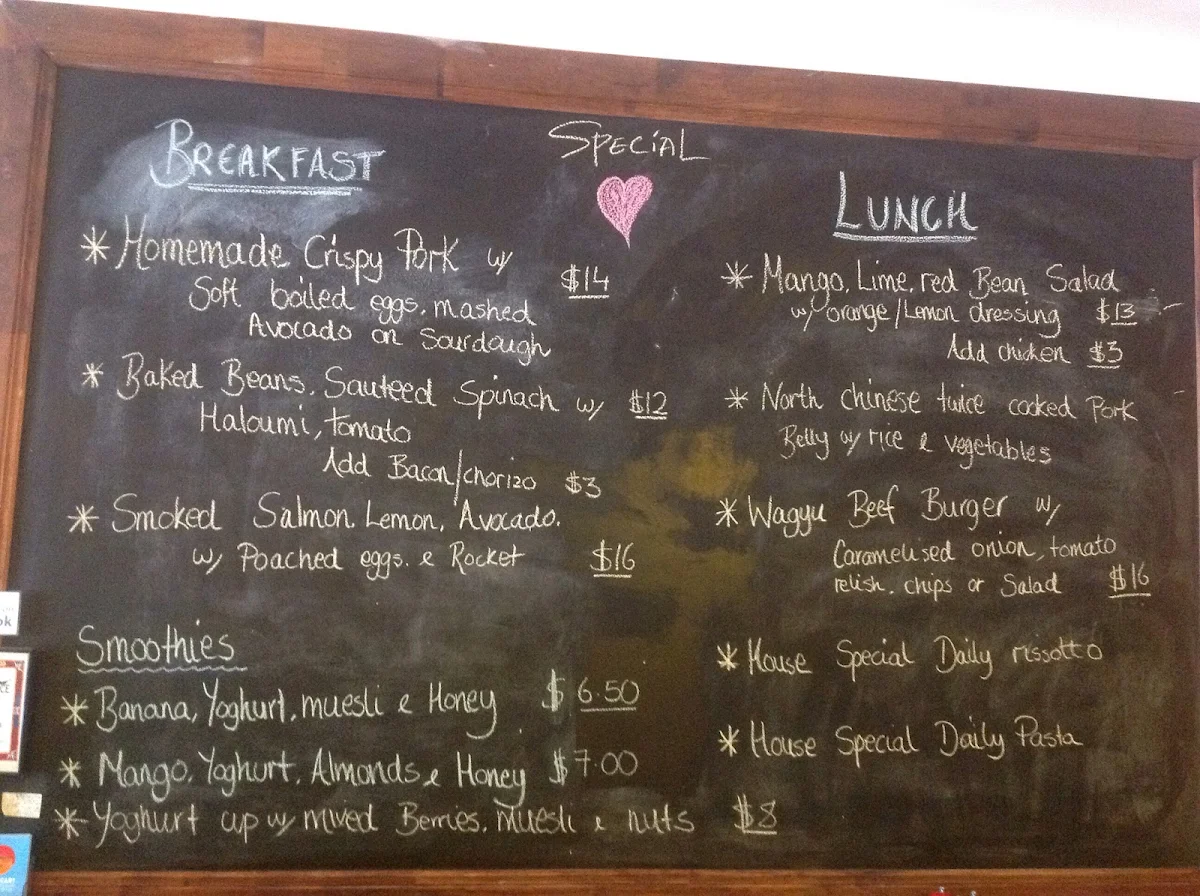 SPECiAL
BREAKFAST
* Homemade Crispy Pork w/
Soft boiled eggs, mashed $14
Avocado on Sourdough
* Baked Beans, Sauteed Spinach w/ $12
Haloumi, tomato
Add Bacon/chorizo $3
* Smoked Salmon. Lemon, Avocado.
w/ Poached eggs. & Rocket $16
Smoothies
* Banana, Yoghurt, muesli & Honey $6.50
* Mango, Yoghurt, Almonds & Honey $7.00
* Yoghurt cup w/ mixed Berries, Muesli & nuts $8
LUNCH
* Mango, Lime, red Bean Salad
w/ orange/Lemon dressing $13
Add chicken $3
* North chinese twice cooked Pork
Belly w/ rice & vegetables
* Wagyu Beef Burger w/
Caramelised onion, tomato
relish, chips or Salad $16
* House Special Daily rissotto
* House Special Daily Pasta